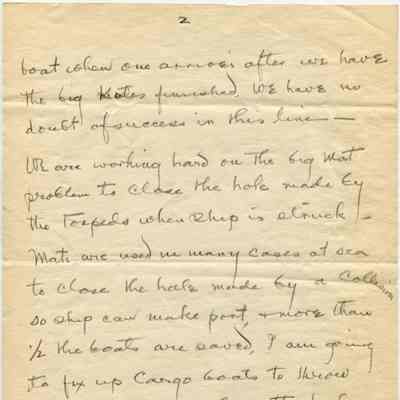 2
boat when one arrives after we have
the big Kites finished. We have no
doubt of success in this line —
We are working hard on the big mat
problem to close the hole made by
the Torpedo when ship is struck —
Mats are used in many cases at sea
to close the hole made by a Collision
so ship can make port, & more than
1/2 the boats are saved, I am going
to fix up Cargo boats to throw